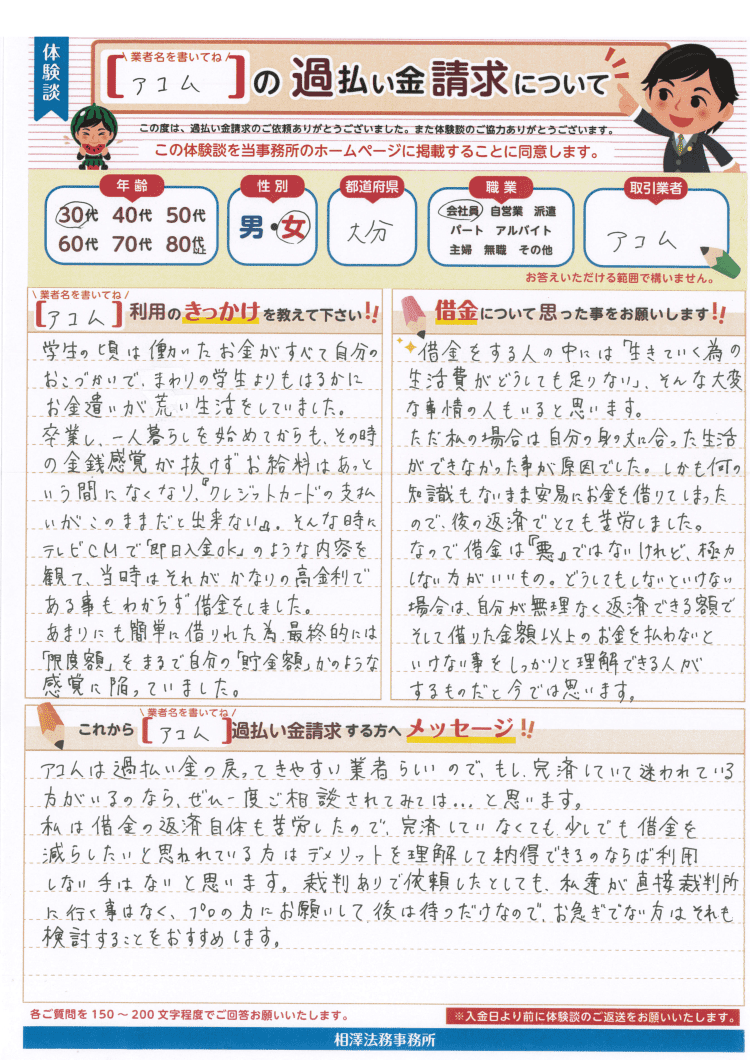 体験談
業者名を書いてね
[アコム]の過払い金請求について
この度は、過払い金請求のご依頼ありがとうございました。また体験談のご協力ありがとうございます。
この体験談を当事務所のホームページに掲載することに同意します。
年齢
30代 40代 50代
60代 70代 80代以上
性別
男・女
都道府県
大分
職業
会社員 自営業 派遣
パート アルバイト
主婦 無職 その他
取引業者
アコム
お答えいただける範囲で構いません。
業者名を書いてね
[アコム]利用のきっかけを教えて下さい!!
学生の頃は働いたお金がすべて自分の
おこづかいで、まわりの学生よりもはるかに
お金遣いが荒い生活をしていました。
卒業し、一人暮らしを始めてからも、その時
の金銭感覚が抜けずお給料はあっと
いう間になくなり、『クレジットカードの支払
いがこのままだと出来ない』。そんな時に
テレビCMで「即日入金OK」のような内容を
観て、当時はそれがかなりの高金利で
ある事もわからず借金をしました。
あまりにも簡単に借りれた為、最終的には
「限度額」をまるで自分の「貯金額」かのような
感覚に陥っていました。
借金について思った事をお願いします!!
借金をする人の中には「生きていく為の
生活費がどうしても足りない」、そんな大変
な事情の人もいると思います。
ただ私の場合は自分の身の丈に合った生活
ができなかった事が原因でした。しかも何の
知識もないまま安易にお金を借りてしまった
ので、後の返済でとても苦労しました。
なので借金は『悪』ではないけれど、極力
しない方がいいもの。どうしてもしないといけない
場合は、自分が無理なく返済できる額で
そして借りた金額以上のお金を払わないと
いけない事をしっかりと理解できる人が
するものだと今では思います。
業者名を書いてね
これから[アコム]過払い金請求する方へメッセージ!!
アコムは過払い金の戻ってきやすい業者らしいので、もし、完済していて迷われている
方がいるのなら、ぜひ一度ご相談されてみては...と思います。
私は借金の返済自体も苦労したので、完済していなくても少しでも借金を
減らしたいと思われている方はデメリットを理解して納得できるのならば利用
しない手はないと思います。裁判ありで依頼したとしても、私達が直接裁判所
に行く事はなく、プロの方にお願いして後は待つだけなので、お急ぎでない方はそれも
検討することをおすすめします。
各ご質問を150～200文字程度でご回答お願いいたします。
※入金日より前に体験談のご返送をお願いいたします。
相澤法務事務所